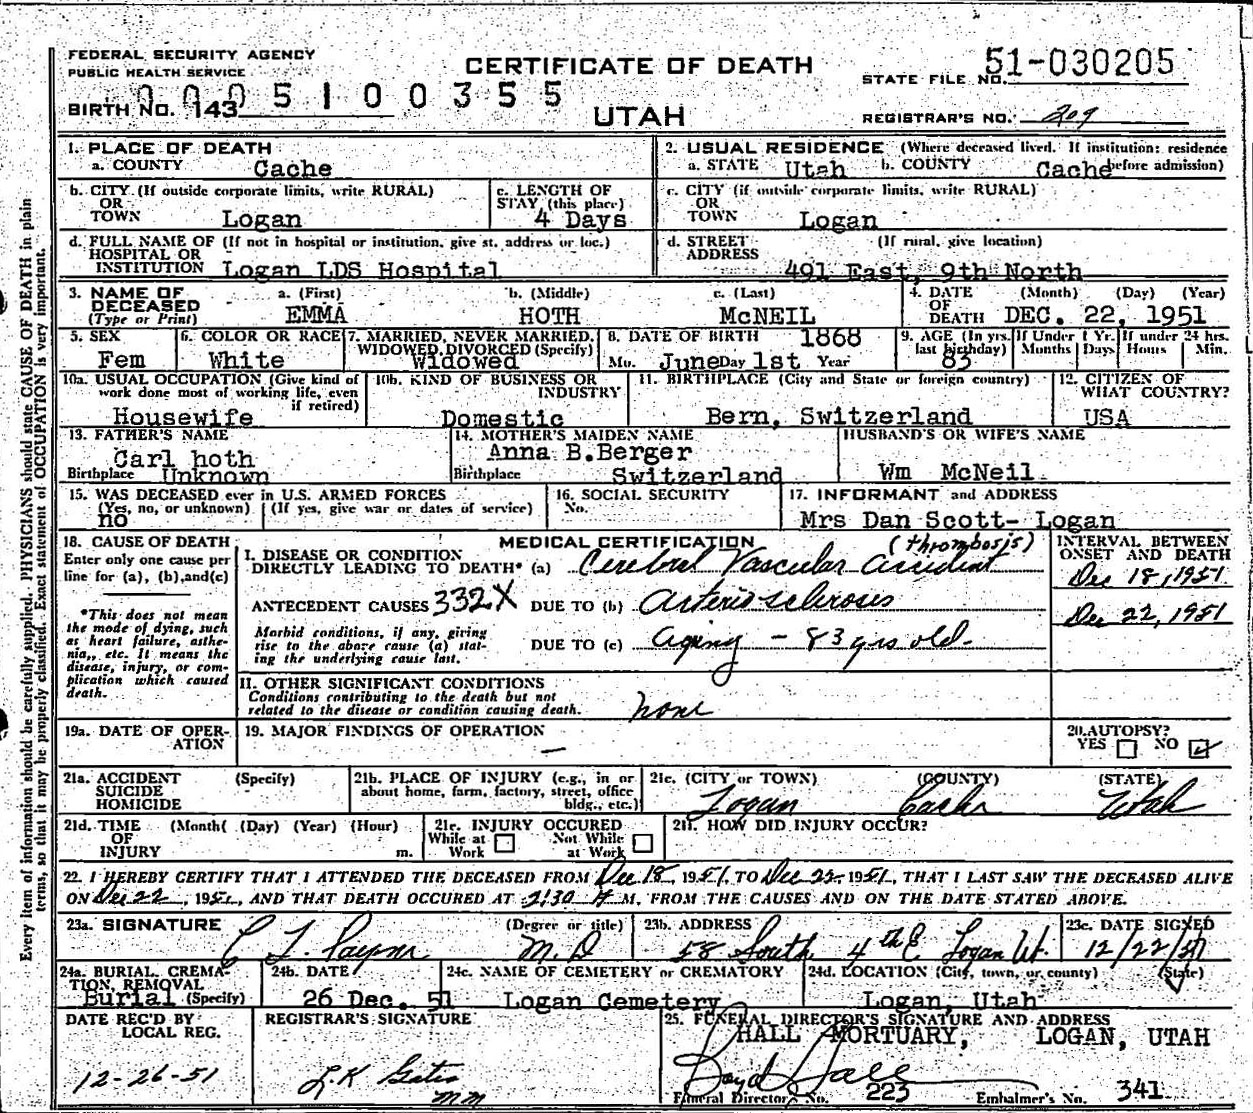 FEDERAL SECURITY AGENCY
PUBLIC HEALTH SERVICE
CERTIFICATE OF DEATH
STATE FILE NO. 51-030205
0005100355
BIRTH NO. 143
UTAH
REGISTRAR'S NO. 209
1. PLACE OF DEATH
a. COUNTY Cache
2. USUAL RESIDENCE (Where deceased lived. If institution: residence before admission)
a. STATE Utah b. COUNTY Cache
b. CITY (If outside corporate limits, write RURAL) OR TOWN Logan
c. LENGTH OF STAY (this place) 4 Days
c. CITY (if outside corporate limits, write RURAL) OR TOWN Logan
d. FULL NAME OF (If not in hospital or institution, give st. address or loc.) HOSPITAL OR INSTITUTION Logan LDS Hospital
d. STREET ADDRESS (If rural, give location) 491 East, 9th North
3. NAME OF DECEASED (Type or Print)
a. (First) b. (Middle) c. (Last)
EMMA HOTH McNEIL
4. DATE OF DEATH (Month) (Day) (Year)
DEC. 22, 1951
5. SEX Fem
6. COLOR OR RACE White
7. MARRIED, NEVER MARRIED, WIDOWED, DIVORCED (Specify) Widowed
8. DATE OF BIRTH 1868
Mo. June Day 1st Year
9. AGE (In yrs. last birthday) 83
If Under 1 Yr. Months Days
If under 24 hrs. Hours Min.
10a. USUAL OCCUPATION (Give kind of work done most of working life, even if retired) Housewife
10b. KIND OF BUSINESS OR INDUSTRY Domestic
11. BIRTHPLACE (City and State or foreign country) Bern, Switzerland
12. CITIZEN OF WHAT COUNTRY? USA
13. FATHER'S NAME
Carl hoth
Birthplace Unknown
14. MOTHER'S MAIDEN NAME
Anna B.Berger
Birthplace Switzerland
HUSBAND'S OR WIFE'S NAME
Wm McNeil
15. WAS DECEASED ever in U.S. ARMED FORCES
(Yes, no, or unknown) (If yes, give war or dates of service)
no
16. SOCIAL SECURITY No.
17. INFORMANT and ADDRESS
Mrs Dan Scott- Logan
18. CAUSE OF DEATH
Enter only one cause per line for (a), (b), and (c)
*This does not mean the mode of dying, such as heart failure, asthenia, etc. It means the disease, injury, or complication which caused death.
MEDICAL CERTIFICATION
I. DISEASE OR CONDITION DIRECTLY LEADING TO DEATH* (a) Cerebral Vascular accident (thrombosis)
ANTECEDENT CAUSES 332X DUE TO (b) arteriosclerosis
Morbid conditions, if any, giving rise to the above cause (a) stating the underlying cause last.
DUE TO (c) aging - 83 yrs old.
INTERVAL BETWEEN ONSET AND DEATH
Dec 18, 1951
Dec 22, 1951
II. OTHER SIGNIFICANT CONDITIONS
Conditions contributing to the death but not related to the disease or condition causing death.
none
19a. DATE OF OPERATION
19. MAJOR FINDINGS OF OPERATION
—
20. AUTOPSY?
YES NO ✓
21a. ACCIDENT SUICIDE HOMICIDE (Specify)
21b. PLACE OF INJURY (e.g., in or about home, farm, factory, street, office bldg., etc.)
21c. (CITY or TOWN) (COUNTY) (STATE)
Logan Cache Utah
21d. TIME OF INJURY (Month) (Day) (Year) (Hour) m.
21e. INJURY OCCURED
While at Work Not While at Work
21f. HOW DID INJURY OCCUR?
22. I HEREBY CERTIFY THAT I ATTENDED THE DECEASED FROM Dec 18, 1951, TO Dec 22, 1951, THAT I LAST SAW THE DECEASED ALIVE
ON Dec 22, 1951, AND THAT DEATH OCCURED AT 2:30 M, FROM THE CAUSES AND ON THE DATE STATED ABOVE.
23a. SIGNATURE (Degree or title)
C L Payne M.D
23b. ADDRESS
58 South 4th E Logan Ut.
23c. DATE SIGNED
12/22/51
24a. BURIAL, CREMATION, REMOVAL (Specify) Burial
24b. DATE 26 Dec. 51
24c. NAME OF CEMETERY or CREMATORY Logan Cemetery
24d. LOCATION (City, town, or county) (State) Logan, Utah
DATE REC'D BY LOCAL REG.
12-26-51
REGISTRAR'S SIGNATURE
L.K Gates
mm
25. FUNERAL DIRECTOR'S SIGNATURE AND ADDRESS
HALL MORTUARY, LOGAN, UTAH
Boyd Hall
Funeral Director's No. 223 Embalmer's No. 341
Every item of information should be carefully supplied. PHYSICIANS should state CAUSE OF DEATH in plain
terms, so that it may be properly classified. Exact statement of OCCUPATION is very important.